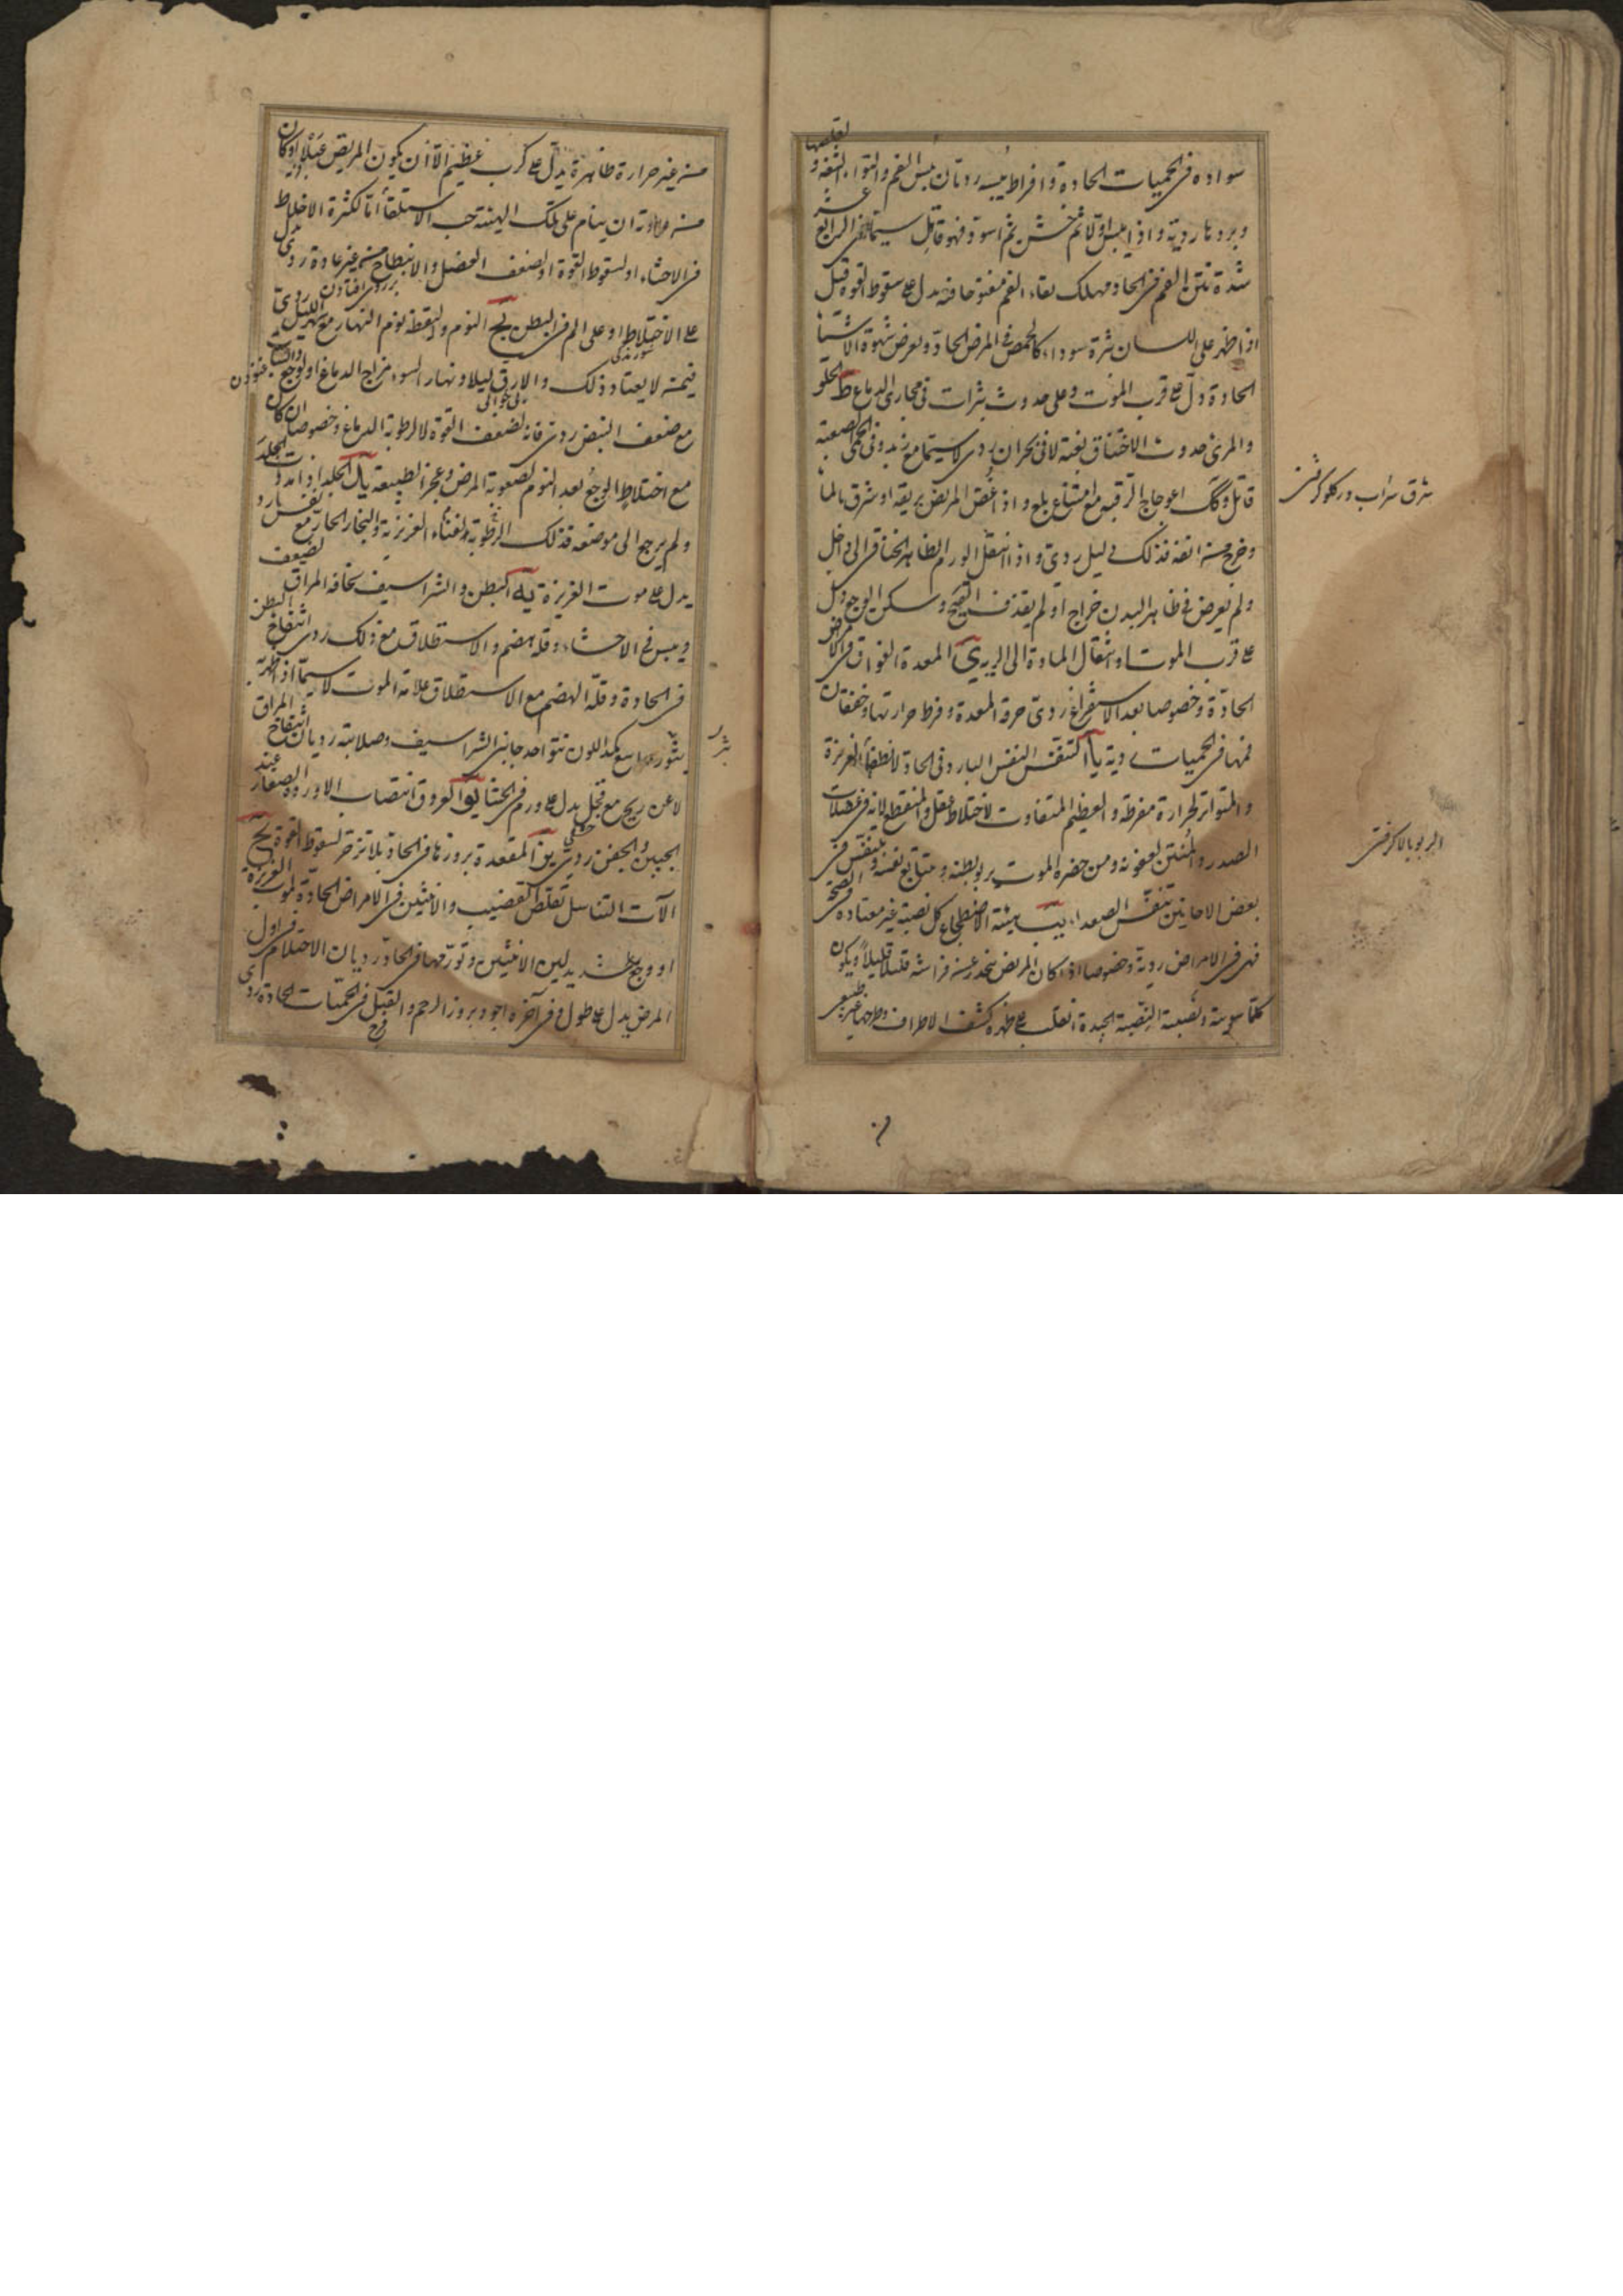 سواده فى الحميات الحادة و افراط يبسه رديان يبس الفم و التواء الشفة و تقلصها
و بردها ردية و اذا يبس اولا ثم خشن ثم اسود فهو قاتل سيما فى الرابع عشر
شدة نتن الفم فى الحاد مهلك بقاء الفم مفتوحا فيه يدل على سقوط القوة قيل
اذا ظهر على اللسان بثرة سوداء كالحمص فى المرض الحاد و يعرض شهوة الاشيا
الحادة دل على قرب الموت و على حدوث بثرات فى مجارى الدماغ يط الحلق
و المرئ حدوث الاختناق بغتة لا فى بحران ردى لا سيما مع زبد و فى الحمى الصعبة
قاتل و كذلك اعوجاج الرقبة مع امتناع بلع و اذا غص المريض بريقه او شرق بالماء
و خرج من انفه فذلك دليل ردى و اذا انتقل الورم الظاهر الخناقى الى داخل
و لم يعرض فى ظاهر البدن خراج او لم يقذف القيح و سكن الوجع دل
على قرب الموت او انتقال المادة الى الرية ك المعدة الفواق فى الامراض
الحادة و خصوصا بعد الاستفراغ ردى حرقة المعدة و فرط حرارتها و خفقان
فمها فى الحميات ردية كا التنفس النفس البارد فى الحادة لانطفاء الغريزة
و المتواتر لحرارة مفرطة و العظيم المتفاوت لاختلاط عقل و المنقطع لانه فى عضلات
الصدر و المنتن لعفونة و من حضره الموت يربو بطنه و يتتابع نفسه و يتنفس فى
بعض الاحايين تنفس الصعداء كب هيئة الاضطجاع كل نصبة غير معتادة فى الصحة
فهى فى الامراض ردية و خصوصا اذا كان المريض ينحدر عن فراشه قليلا قليلا و يكون
كلما سويته و نصبته النصبة الجيدة انقلب على ظهره كشف الاطراف و طرحها غير طبيعى
شرق شراب در كلو كرفتن
الربو بالا كرفتن
من غير حرارة ظاهرة يدل على كرب عظيم الا ان يكون المريض عبلا او كان
من عادته ان ينام على تلك الهيئة حب الاستلقاء اما لكثرة الاخلاط
فى الاحشاء او لسقوط القوة او لضعف العضل و الانبطاح من غير عادة ردى يدل
بر روى افتادن
على الاختلاط او على الم فى البطن كج النوم و اليقظة نوم النهار مع سهر الليل ردى
فيمن لا يعتاد ذلك و الارق ليلا و نهارا لسوء مزاج الدماغ او لوجع و السبات
بى خوابى
غنودن
مع ضعف النبض ردى فانه لضعف القوة لا لرطوبة الدماغ و خصوصا ان كان
مع اختلاط الوجع بعد النوم لصعوبة المرض و عجز الطبيعة كد الجلد اذا امددت الجلد
و لم يرجع الى موضعه فذلك لفناء الرطوبة الغريزية و البخار الحار مع نفس بارد
يدل على موت الغريزة كه البطن و الشراسيف نحافة المراق لضعف
و يبس فى الاحشاء و قلة هضم و الاستطلاق مع ذلك ردى انتفاخ البطن
فى الحادة و قلة الهضم مع الاستطلاق علامة الموت لا سيما اذا ظهر
بثور واسع كمد اللون نتو احد جانبى الشراسيف و صلابته رديان انتفاخ المراق
بثر
لا عن ريح مع ثقل يدل على ورم فى الحشا كو العروق انتصاب الاوردة الصغار عند
الجبين و الجفن ردى كز المقعدة بروزها فى الحادة بلا تزحر لسقوط القوة كح
الآت التناسل تقلص القضيب و الانثيين فى الامراض الحادة لموت الغريزة
او وجع شديد لين الانثيين و تورمهما فى الحادة رديان الاحتلام فى اول
المرض يدل على طول و فى آخره اجود بروز الرحم و القبل فى الحميات الحادة ردى
فرج